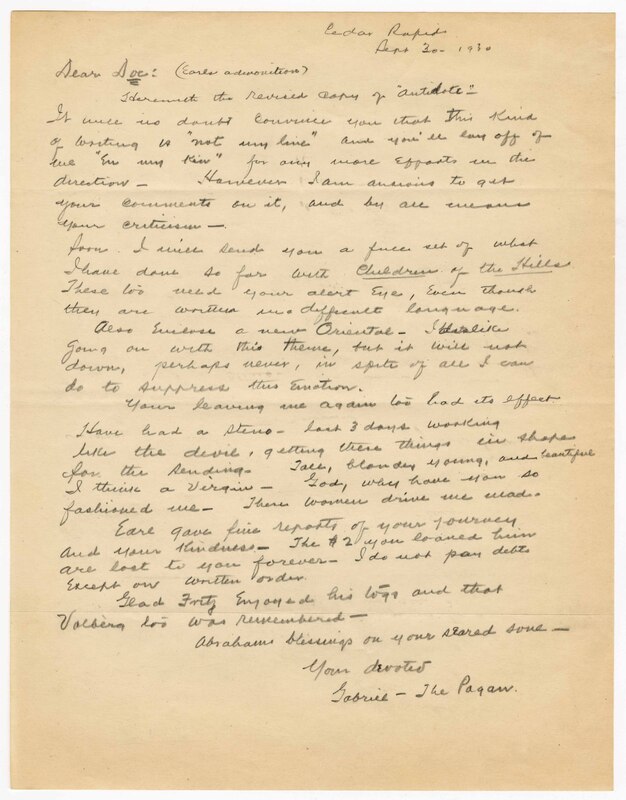 Cedar Rapids
Sept 30 - 1930
Dear Doc: (Earls admonition)
Herewith the revised copy of "Antidote" -
It will no doubt convince you that this kind
of writing is "not my line" and you'll lay off of
me "En my Kin" for any more efforts in the
direction - However I am anxious to get
your comments on it, and by all means
your criticism -
Soon I will send you a full set of what
I have done so far with Children of the Hills
These too need your alert Eye, Even though
they are written in a different language.
Also Enclose a new Oriental - I dislike
going on with this theme, but it will not
down, perhaps never, in spite of all I can
do to suppress this Emotion.
Your leaving me again too had its effect
Have had a steno - last 3 days working
like the devil, getting these things in shape
for the sending - Tall, blonde, young, and beautiful
I think a Virgin - God, why have you so
fashioned me - These women drive me mad.
Earl gave fine reports of your journey
and your kindness - The $2 you loaned him
are lost to you forever - I do not pay debts
Except on written order.
Glad Fritz Enjoyed his togs and that
Volberg too was remembered -
Abrahams blessings on your scared soul -
Your devoted
Gabriel - The Pagan.